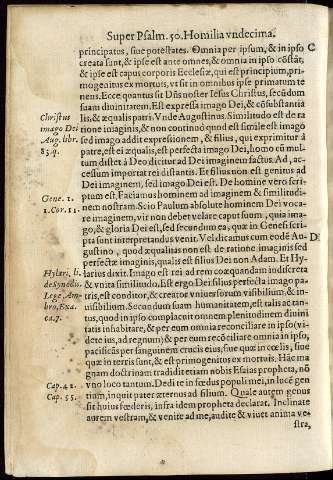 Super Psalm. 50. Homilia vndecima.
principatus, siue potestates. Omnia per ipsum, & in ipso
creata sunt, & ipse est ante omnes, & omnia in ipso cōstāt,
& ipse est caput corporis Ecclesiæ, qui est principium, pri-
mogenitus ex mortuis, vt sit in omnibus ipse primatum te
nens. Ecce quantus sit Dñs noster Iesus Christus, secūdum
suam diuinitatem. Est expressa imago Dei, & cōsubstantia
lis, & æqualis patri. Vnde Augustinus. Similitudo est de ra
tione imaginis, & non continuò quod est simile est imago
sed imago addit expressionem, & filius, qui exprimitur à
patre, est ei æqualis, est perfecta imago Dei, homo cū mul-
tum distet à Deo dicitur ad Dei imaginem factus. Ad, ac-
cessum importat rei distantis. Et filius non est genitus ad
Dei imaginem, sed imago Dei est. De homine verò scri-
ptum est, Faciamus hominem ad imaginem & similitudi-
nem nostram. Scio Paulum absolute hominem Dei voca-
re imaginem, vir non debet velare caput suum, quia ima-
go, & gloria Dei est, sed secundum ea, quæ in Genesi scri-
pta sunt interpretandus venit. Vel dicamus cum eodē Au-
gustino, quod æqualitas non est de ratione imaginis sed
perfectæ imaginis, qualis est filius Dei non Adam. Et Hy-
larius dixit. Imago est rei ad rem coæquandam indiscreta
& vnita similitudo. Est ergo Dei filius perfecta imago pa-
tris, est conditor, & creator vniuersorum visibilium, & in-
uisibilium. Secundum suam humanitatem, est talis ac tan-
tus, quod in ipso complacuit omnem plenitudinem diuini
tatis inhabitare, & per eum omnia reconciliare in ipso (vi-
dete ius, ad regnum); & per eum recōciliare omnia in ipso,
pacificās per sanguinem crucis eius, siue quæ in cœlis, siue
quæ in terris sunt, & est primogenitus ex mortuis. Hāc ma
gnam doctrinam tradidit etiam nobis Esaias propheta, nō
vno loco tantum. Dedi te in fœdus populi mei, in lucē gen
tium, inquit pater æternus ad filium. Quale autem genus
sit huius fœderis, infra idem propheta declarat. Inclinate
aurem vestram, & venite ad me, audite & viuet anima ve-
stra,
C
D
Christus
imago Dei
Aug. libr.
83. q.
Gene. 1.
1. Cor. 11.
Hylari. li.
de Synodis.
Lege Am-
bro. Exa.
ca. 7.
Cap. 42.
Cap. 55.